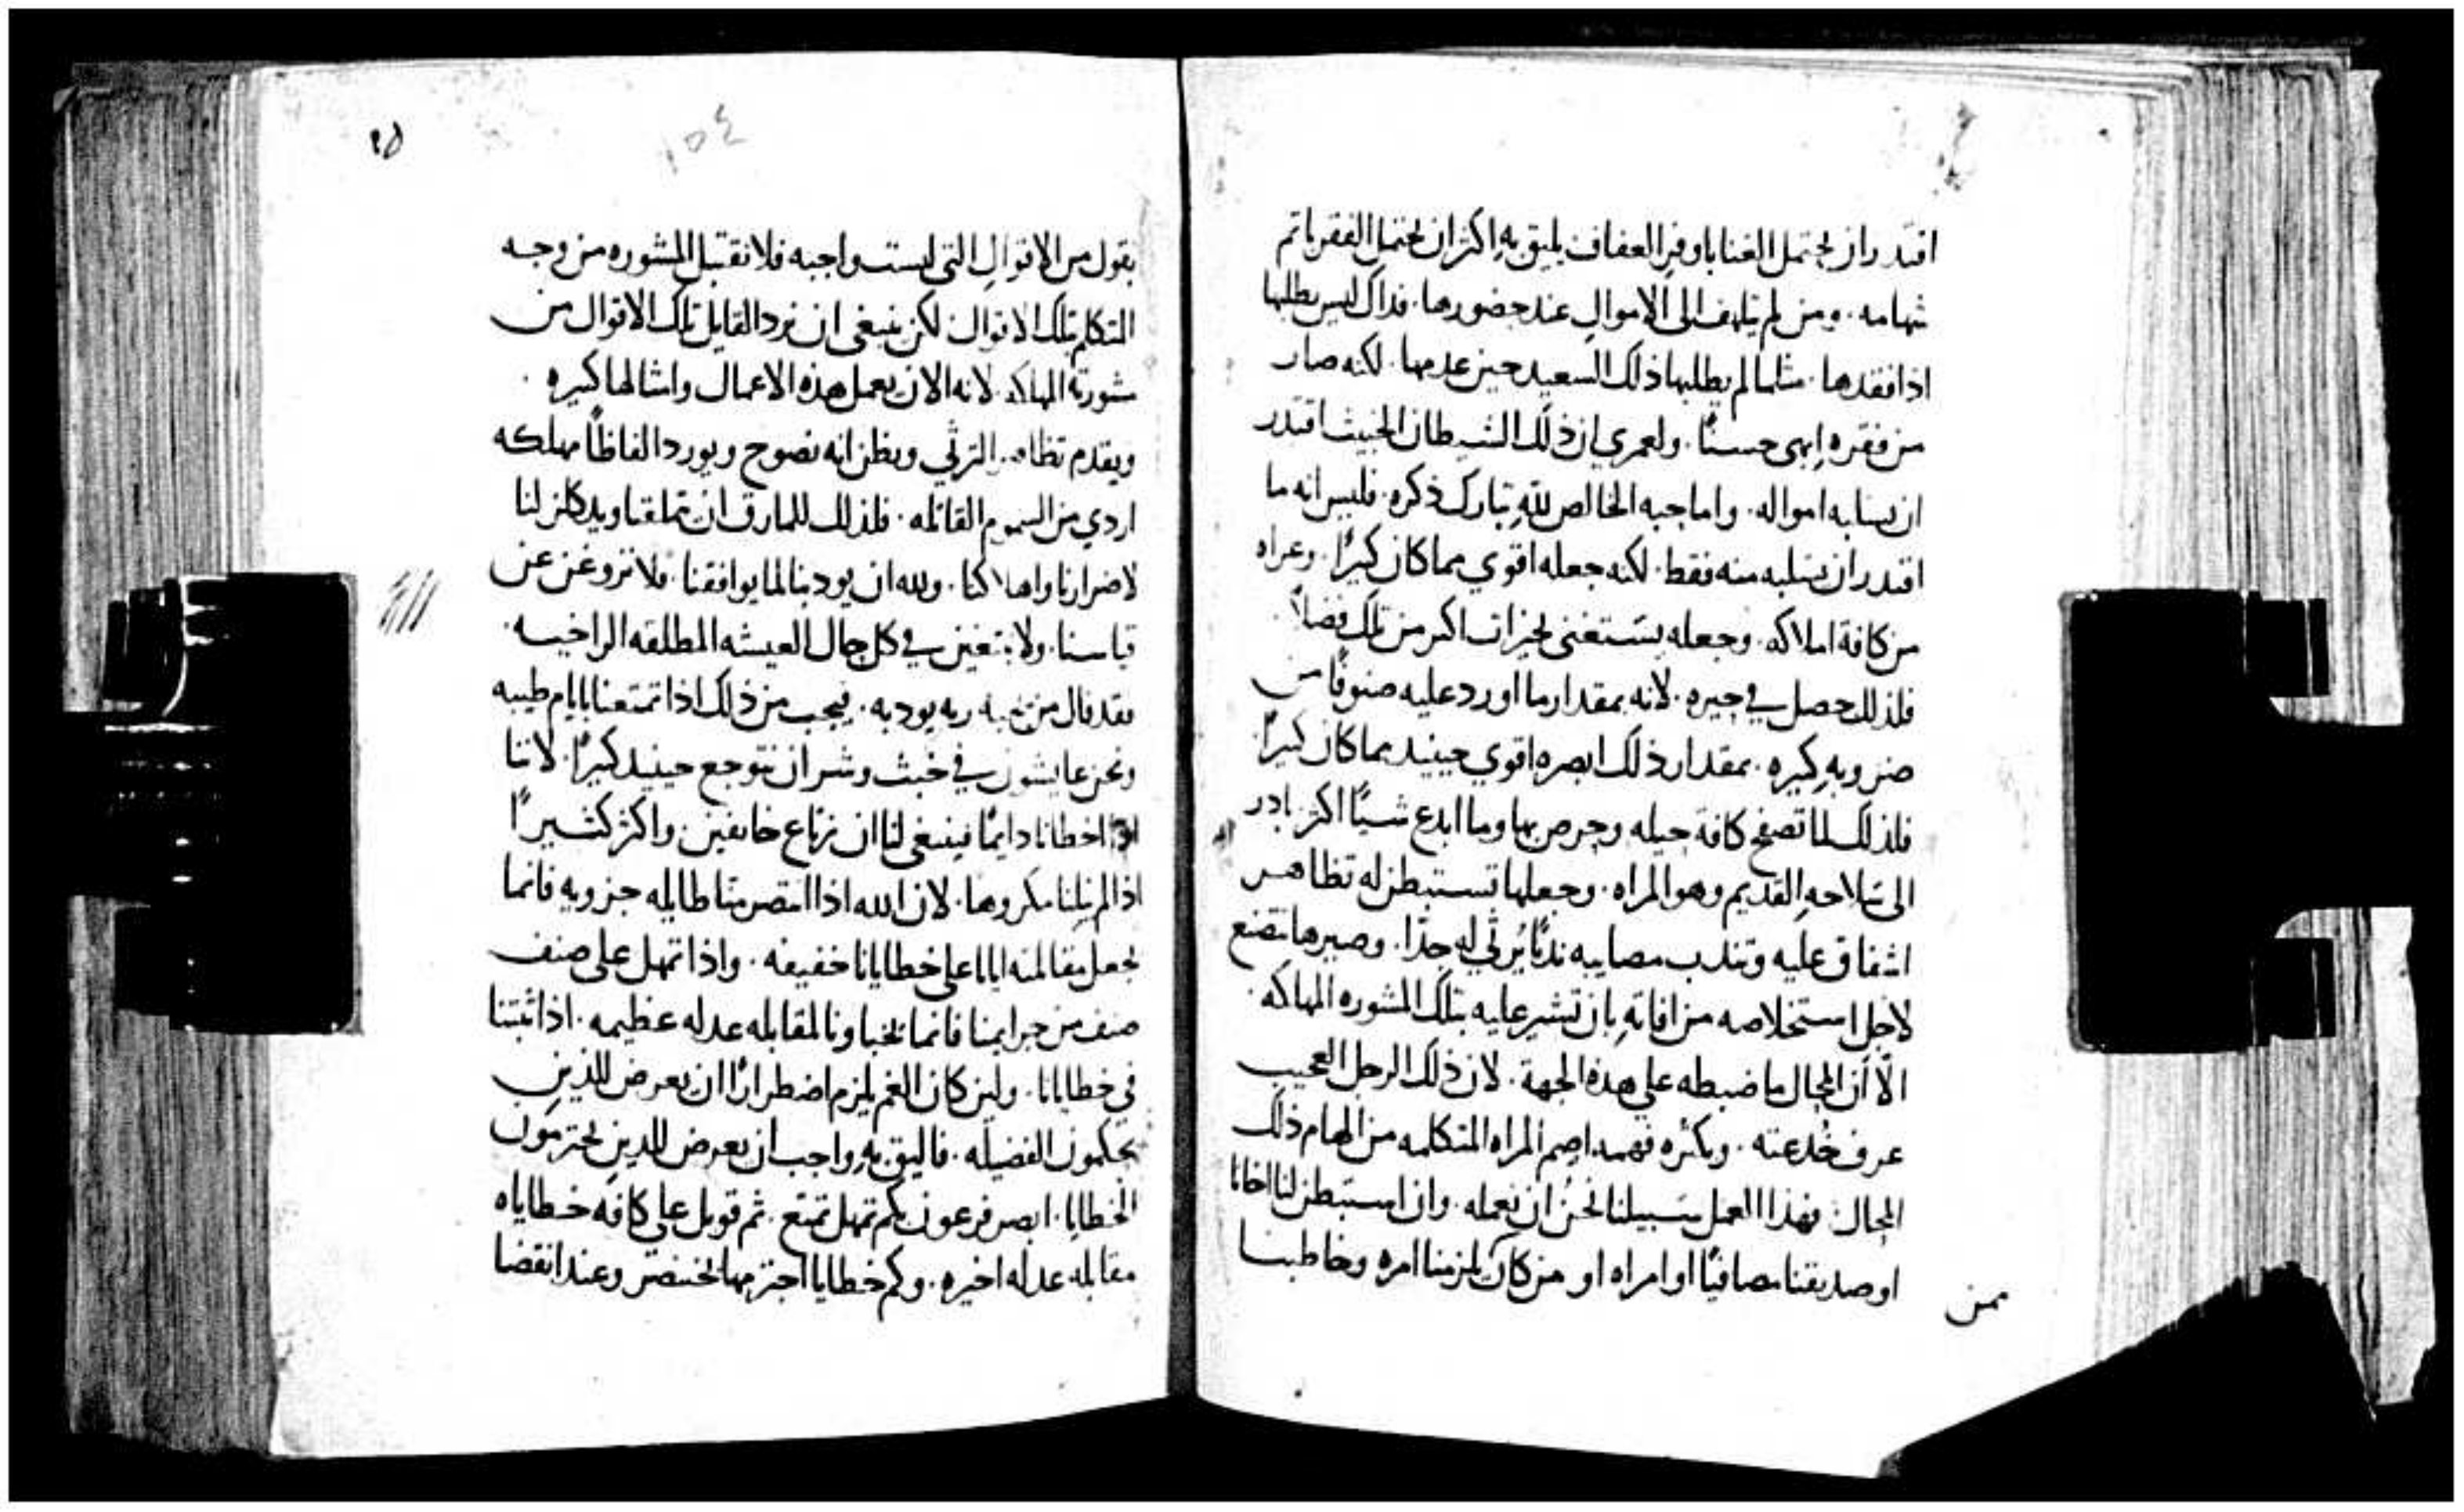 اقتدر ان يحتمل الغنا باوفر العفاف يليق به اكثر ان يحتمل الفقر باتم
شهامه . ومن لم يتلهف الى الاموال عند حضورها . فداك ليس يطلبها
اذا فقدها . مثلما لم يطلبها ذلك السعيد حين عدمها . لكنه صار
من فقره ابهى حسنًا . ولعمري ان ذلك الشيطان الخبيث اقتدر
ان يسلبه امواله . واما حبه الخالص لله تبارك ذكره . فليس انه ما
اقتدر ان يسلبه منه فقط . لكنه جعله اقوي مما كان كثيرًا . وعراه
من كافة املاكه . وجعله يستغنى بخيرات اكثر من تلك فضلاً
فلذلك حصل في حيره . لانه بمقدار ما اورد عليه صنوفًا من
ضروبه كثيره . بمقدار ذلك ابصره اقوي حينيد مما كان كثيرًا
فلذلك لما تصفح كافة حيله وحرص بها وما ابدع شيًا اكثر بادر
الى سلاحه القديم وهو المراه . وجعلها تستبطن له تظاهر
اشفاق عليه وتندب مصايبه ندبًا يُرثي له جدًا . وصيرها تتصنع
لاجل استخلاصه من افاته بان تشير عليه بتلك المشوره المهلكه .
الّا أن المجال ما ضبطه على هذه الجهة . لان ذلك الرجل العجيب
عرف خُدعته . وبكثره فهمه اصم المراه المتكلمه من الهام ذلك
المجال فهذا العمل سبيلنا نحنُ ان نعمله . وان استبطن لنا اخانا
او صديقنا مصافيًا او امراه او من كان يلزمنا امره وخاطبنا
ممن
١٥٤
يقول من الاقوال التي ليست واجبه فلا نقتبل المشوره من وجه
المتكلم بتلك الاقوال لكن ينبغي ان نرد القايل تلك الاقوال من
مشورته المهلكه . لانه الان يعمل هذه الاعمال وامثالها كثيره .
ويقدم تظاهر الترثي ويظن انه نصوح ويورد الفاظًا مهلكه
اردي من السموم القاتله . فلذلك للمارق ان يتملقنا
لاضرارنا واهلاكنا . ولله ان يودبنا لما يوافقنا . فلا نزوغن عن
قياسنا . ولا نبتغين في كل حال العيشه المطلقه الراخيه .
فقد قال من يحبه ربه يودبه . فيجب من ذلك اذا تمتعنا بايام طيبه
ونحن عايشون في خبث وشر ان نتوجع حينيد كثيرًا . لاننا
اذا اخطانا دايمًا فينبغي لنا ان نرتاع خايفين واكثر كثيرًا
اذا لم ينلنا مكروها . لان الله اذا انتصر منا طالبه جزويه فانما
يجعل مقابلته ايانا على خطايانا خفيفه . واذا تمهل على صنف
صنف من جرايمنا فانما يخباونا لمقابله عدله عظيمه . اذا ثبتنا
في خطايانا . ولين كان الغم يلزم اضطرارًا ان يعرض للذين
يحكمون الفضيله . فاليق به واجب ان يعرض للدين يجترمون
الخطايا . ابصر فرعون بكم تمهل تمتع . ثم قوبل على كافه خطاياه
مقابله عدله اخيره . وكم خطايا اجترمها بختنصر وعند انقضا